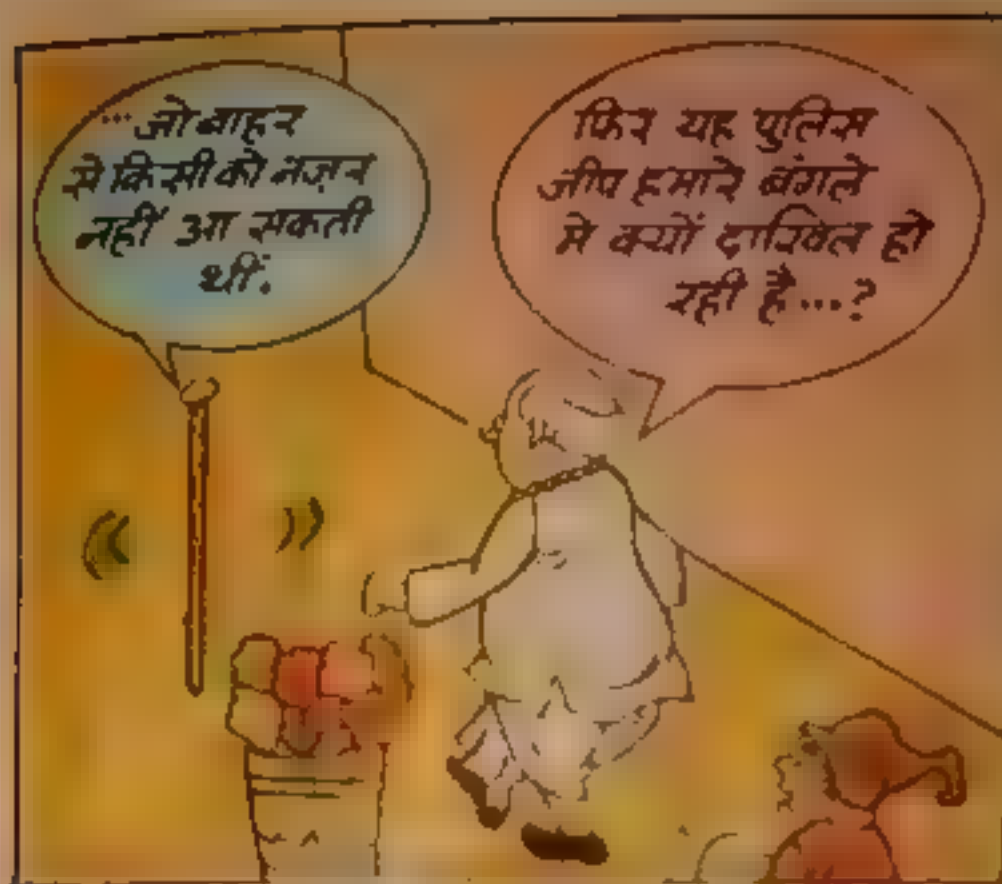 ...जो बाहर
से किसी को नज़र
नहीं आ सकती
थीं.
फिर यह पुलिस
जीप हमारे बंगले
मे क्यों दाखिल हो
रही है...?